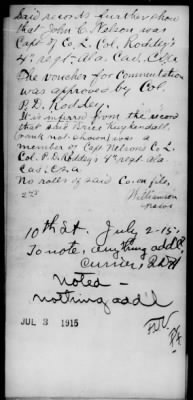 Said records further show
that John C. Nelson was
Capt of Co L. Col. Roddey's
4" regt. Ala. Cav. C.S.A.
The voucher for Commutation
was approved by Col.
P. D. Roddey.
It is inferred from the record
that said Brice Kuykendall
(rank not shown) was a
member of Capt Nelson's Co L.
Col. P. D. Roddey's 4" regt. Ala
Cav. C.S.A.
No rolls of said Co. on file,
Williamson
10th St. July 2-15.
To note, anything add'l.
Currier,
noted -
nothing add'l
JUL 3 1915